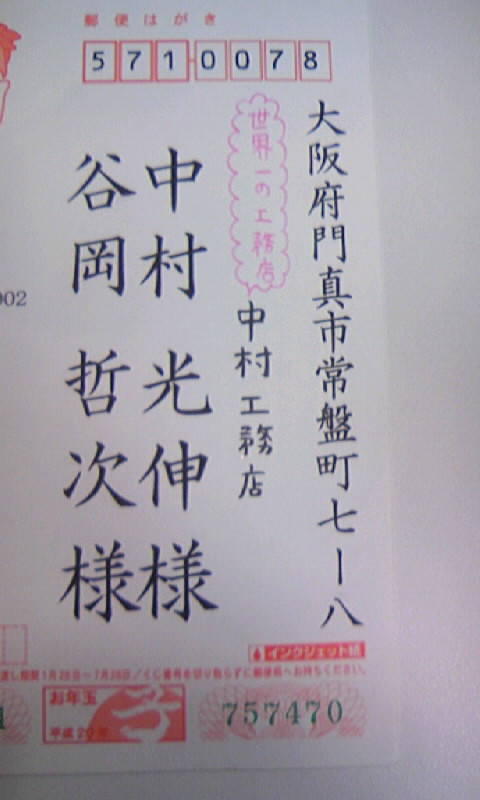 郵便はがき
5710078
大阪府門真市常盤町七ー八
世界一の工務店
中村工務店
中村 光伸様
谷岡 哲次様
902
インクジェット紙
お年玉
757470